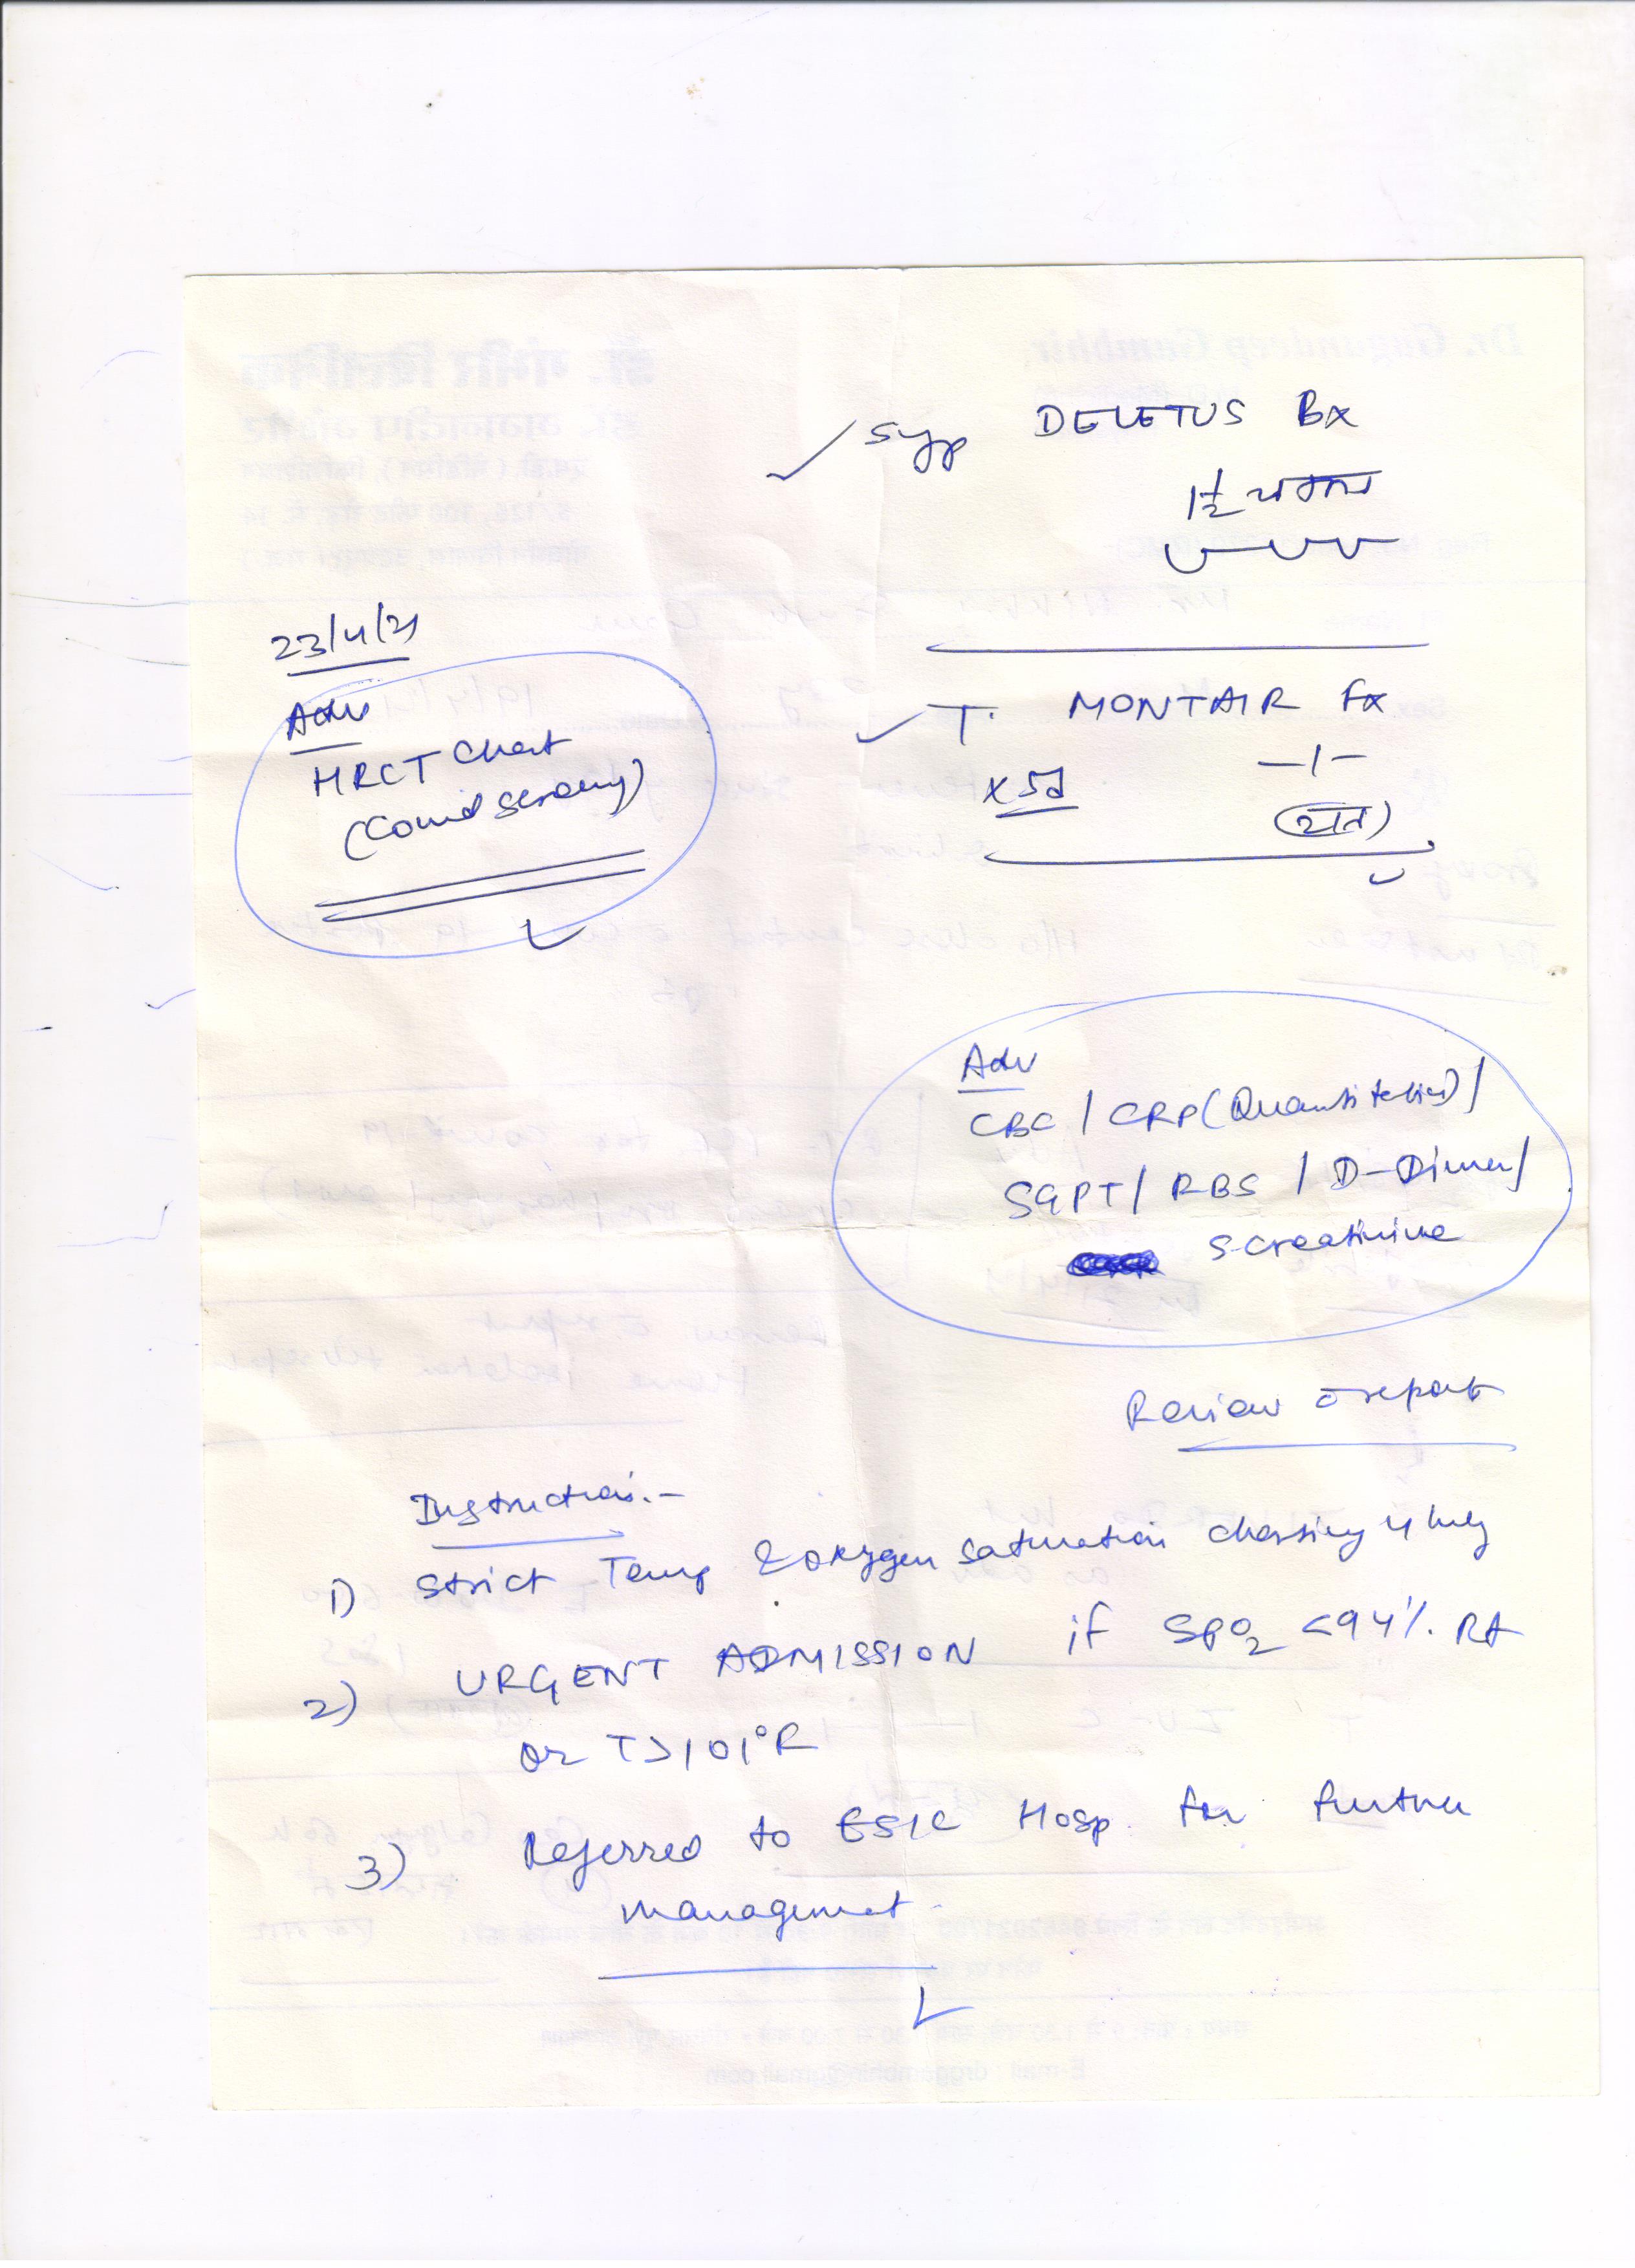 Syp DELETUS BX
1½ चम्मच
23/4/21
Adv
HRCT Chest
(Covid Screeny)
T. MONTAIR FX
x 5d
—/—
(रात)
Adv
CBC / CRP (Quantitative) /
SGPT / RBS / D-Dimer /
S-creatinine
Review c̄ report
Instruction:-
1) Strict Temp & oxygen saturation charting 4 hrly
2) URGENT ADMISSION if SPO₂ <94%. RA
or T>101°F
3) Referred to ESIC Hosp. for further
management.